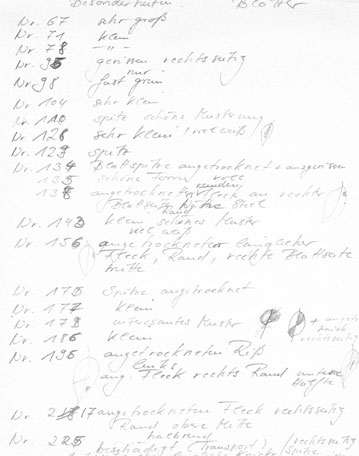 Besonderheiten Blätter
Nr. 67 sehr groß
Nr. 71 klein
Nr. 78 -"-
Nr. 95 gerissen rechtsseitig
Nr. 98 fast nur grün
Nr. 104 sehr klein
Nr. 110 spitz schöne Musterung
Nr. 128 sehr klein / viel weiß /
Nr. 129 spitz
Nr. 134 Blattspitze angetrocknet + ausgerissen
135 schöne Form
138 angetrockneter Fleck an rechter
Blattseite Stiel
Rand
Nr. 143 klein schönes Muster
viel weiß
Nr. 156 angetrockneter länglicher
Fleck, Rand, rechte Blattseite
Mitte
Nr. 170 Spitze angetrocknet
Nr. 177 klein
Nr. 178 interessantes Muster +
rechtsseitig
Nr. 186 klein
Nr. 196 angetrockneten Riß
links
ang. Fleck rechts Rand untere
Hälfte
Nr. 217 angetrockneten Fleck rechtsseitig
Rand obere Mitte
hellbraun
Nr. 225 beschädigt (Transport) / rechtsseitig